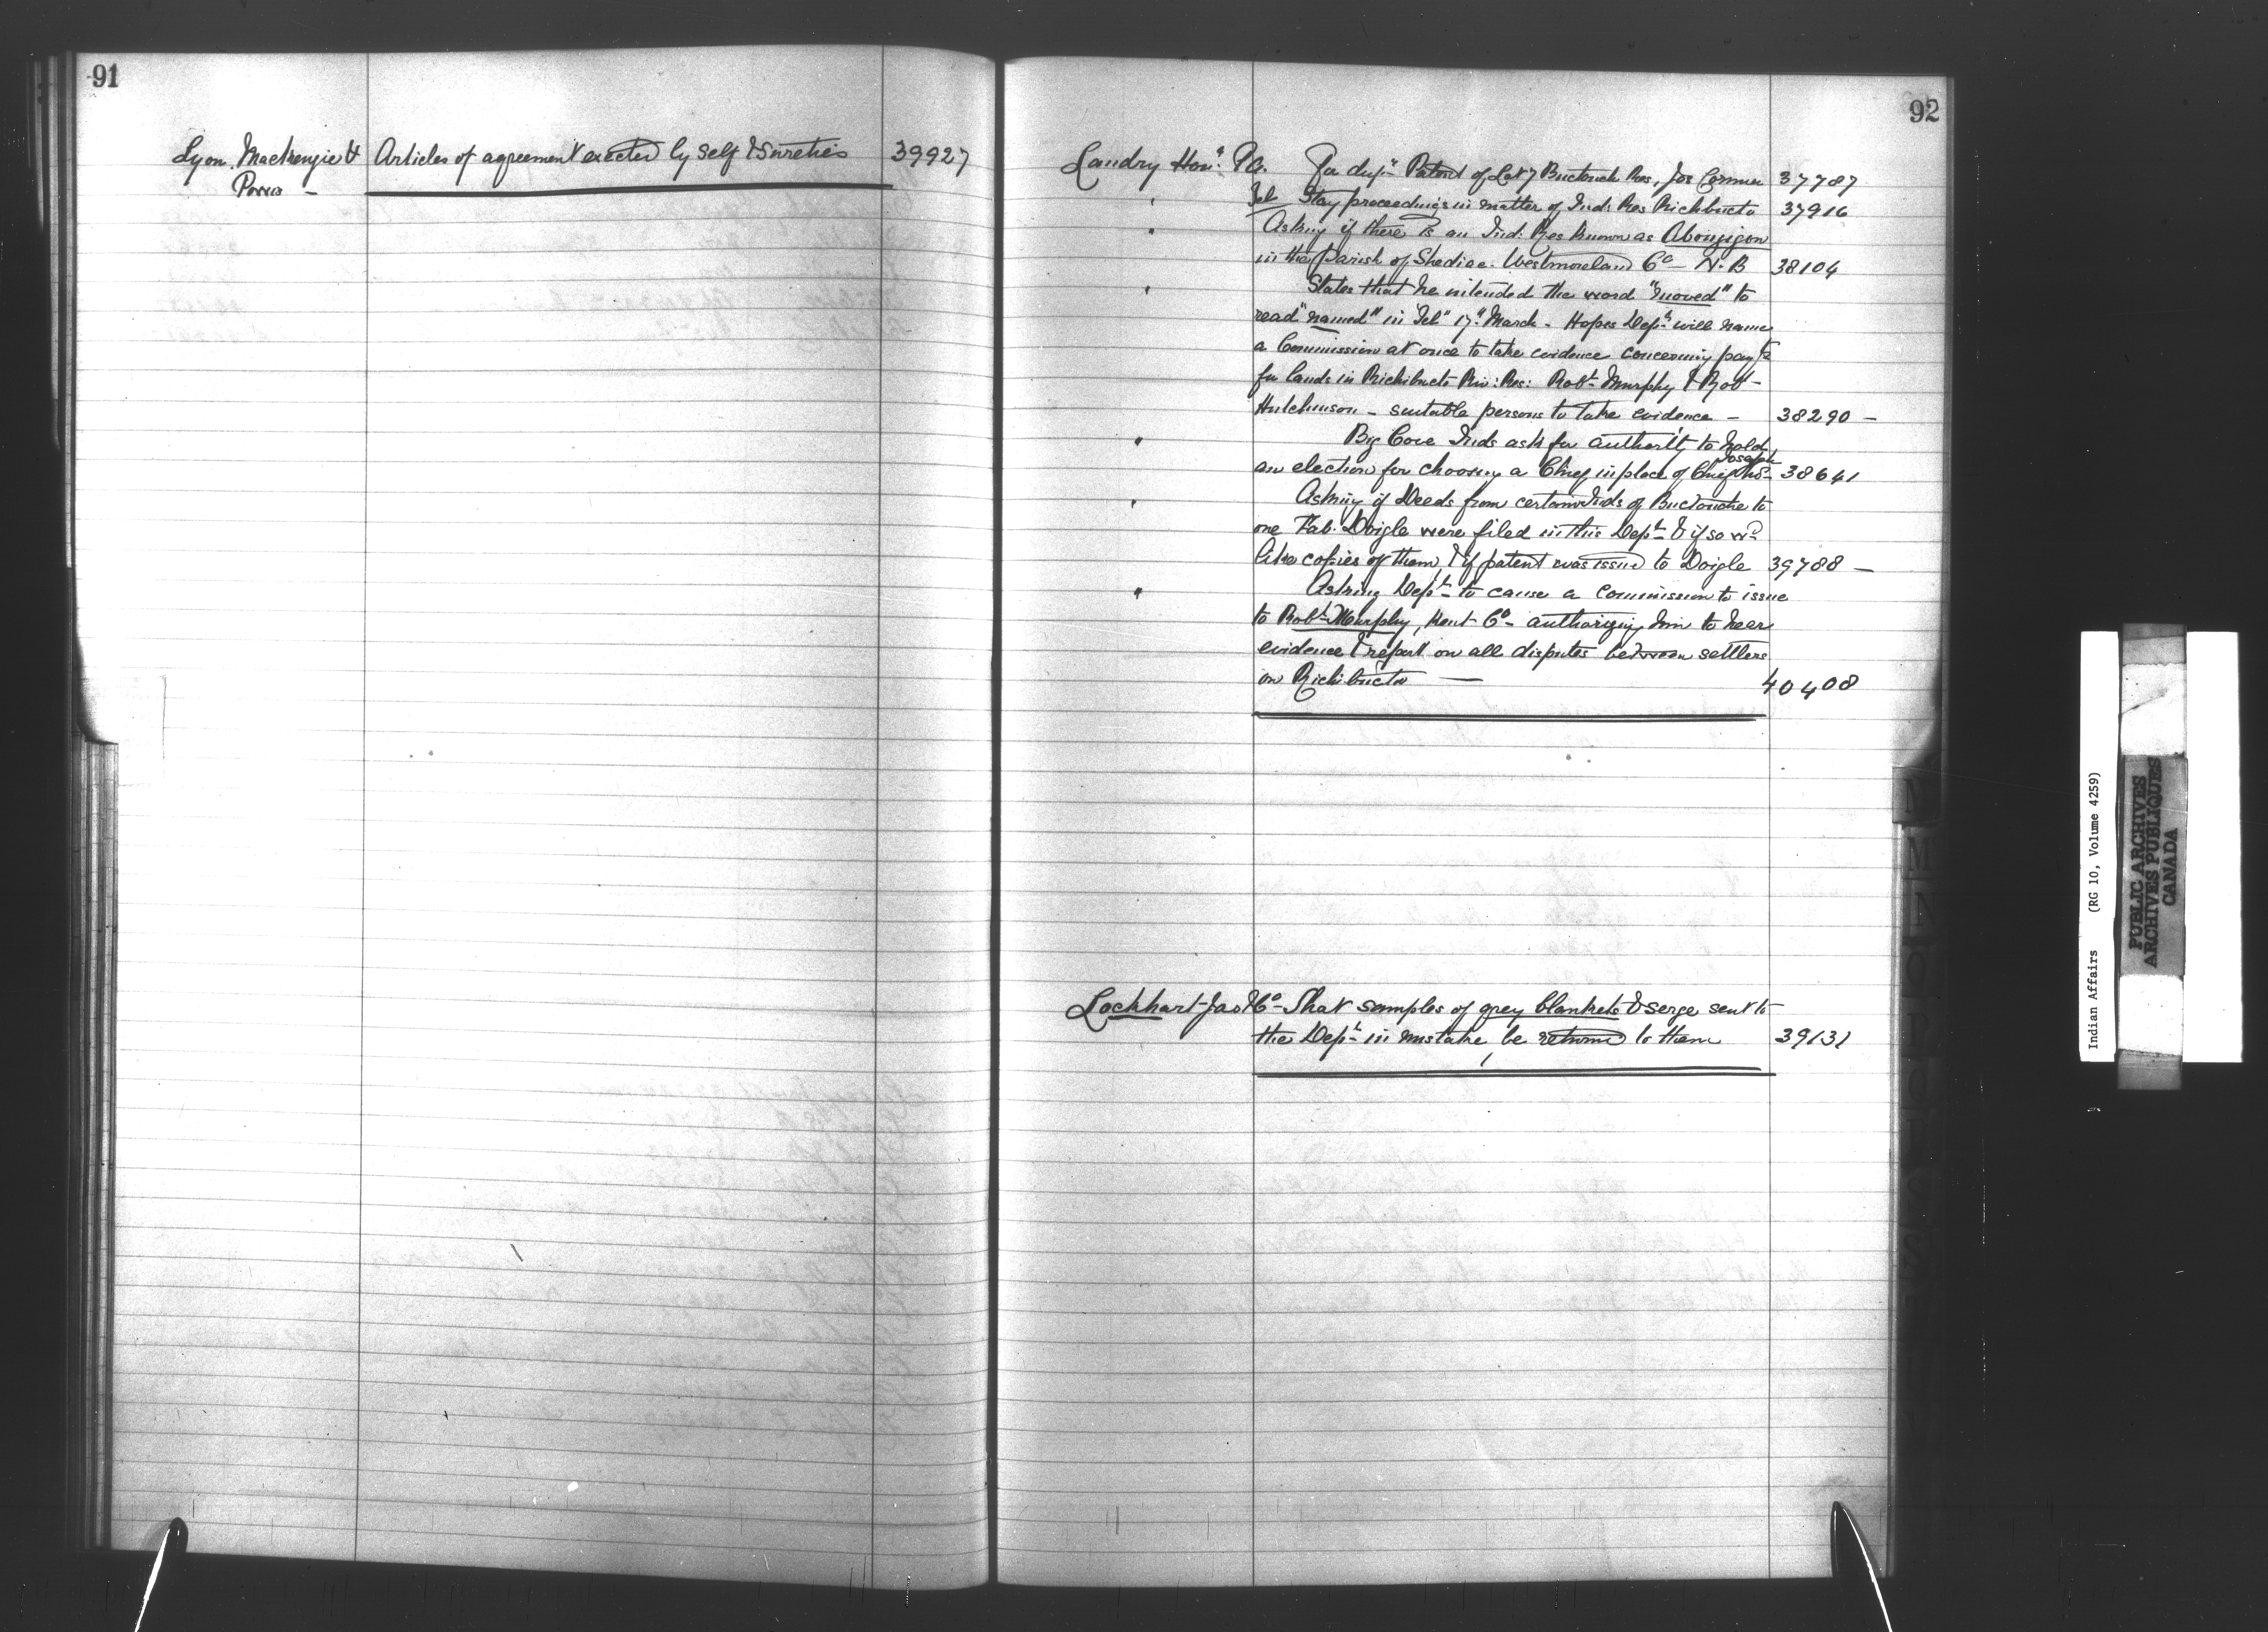 91
Lyon. Mackenzie & Articles of agreement executed by self & sureties 39927
Powis -
92
Landry Hon: P.A. For dup: Patent of Lot 7 Buctouche Res, Jos Cormier 37787
" Tel Stay proceedings in matter of Ind: Res Richibucto 37916
" Asking if there is an Ind: Res known as Aboujagon
in the Parish of Shediac. Westmoreland Co - N.B 38104
" States that he intended the word "moved" to
read "named" in Tel" 17th March - Hopes Dept will name
a Commission at once to take evidence concerning payts
for lands in Richibucto Riv: Res: Robt Murphy & Robt
Hutchinson - suitable persons to take evidence - 38290 -
" Big Cove Inds ask for authority to hold
an election for choosing a Chief in place of Chief Joseph 38641
" Asking if Deeds from certain Inds of Buctouche to
one Fab. Doigle were filed in this Dept & if so wd
like copies of them, & if patent was issued to Doigle 39788 -
" Asking Dept to cause a Commission to issue
to Robt Murphy, Kent Co - authorizing him to hear
evidence & report on all disputes between settlers
on Richibucto — 40408
Lockhart Jas & Co - That samples of grey blankets & serge sent to
the Dept in mistake, be returned to them 39131
Indian Affairs (RG 10, Volume 4259)
PUBLIC ARCHIVES
ARCHIVES PUBLIQUES
CANADA